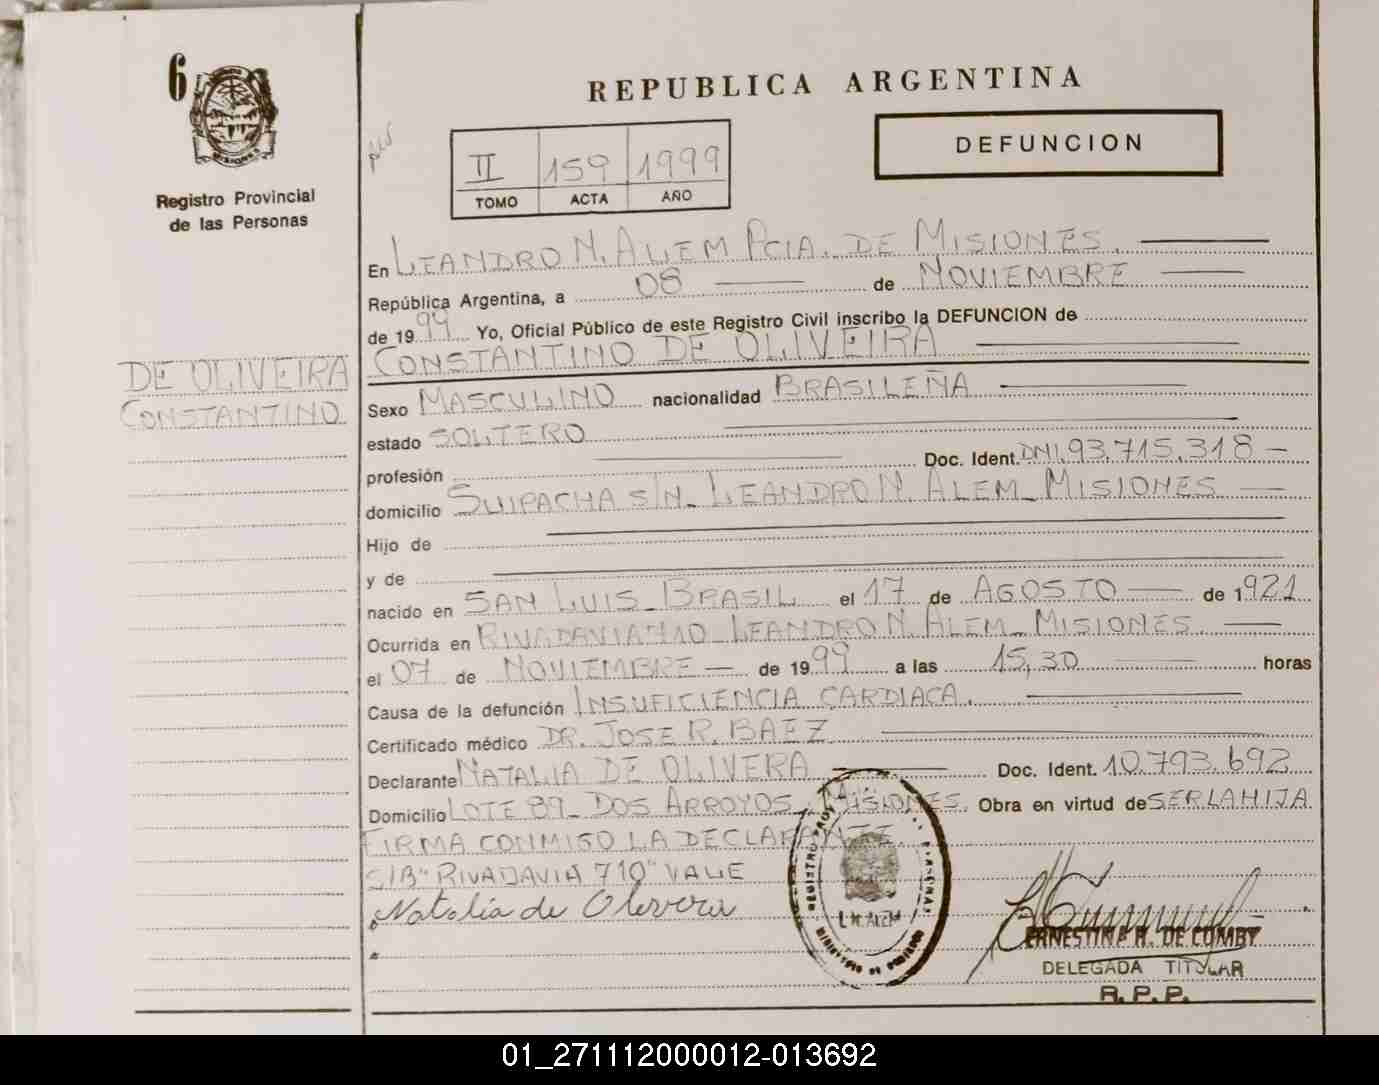 6
REPUBLICA ARGENTINA
DEFUNCION
II 159 1999
TOMO ACTA AÑO
MISIONES
Registro Provincial
de las Personas
DE OLIVEIRA
CONSTANTINO
En LEANDRO N. ALEM PCIA. DE MISIONES.
República Argentina, a 08 de NOVIEMBRE
de 1999 Yo, Oficial Público de este Registro Civil inscribo la DEFUNCION de
CONSTANTINO DE OLIVEIRA
Sexo MASCULINO nacionalidad BRASILEÑA
estado SOLTERO
profesión Doc. Ident. DNI.93.715.318
domicilio SUIPACHA S/N. LEANDRO N. ALEM_ MISIONES
Hijo de
y de
nacido en SAN LUIS_BRASIL el 17 de AGOSTO de 1921
Ocurrida en RIVADAVIA 410_LEANDRO N. ALEM_ MISIONES.
el 07 de NOVIEMBRE de 1999 a las 15,30 horas
Causa de la defunción INSUFICIENCIA CARDIACA.
Certificado médico DR. JOSE R. BAEZ
Declarante NATALIA DE OLIVERA Doc. Ident. 10.793.692
Domicilio LOTE 89_ DOS ARROYOS, MISIONES. Obra en virtud de SER LA HIJA
FIRMA CONMIGO LA DECLARANTE.
S/B "RIVADAVIA 710" VALE
Natalia de Olivera
L.N. ALEM
ERNESTINA R. DE CUMBY
DELEGADA TITULAR
R.P.P.
01_271112000012-013692